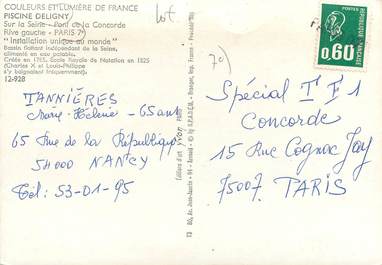 COULEURS ET LUMIÈRE DE FRANCE
PISCINE DELIGNY
Sur la Seine - Pont de la Concorde
Rive gauche - PARIS 7e
"Installation unique au monde"
Bassin flottant indépendant de la Seine,
alimenté en eau potable.
Créée en 1785. École Royale de Natation en 1825
(Charles X et Louis-Philippe
s'y baignaient fréquemment).
12-928
TANNIÈRES
Marie-Hélène - 65 ans
65 Rue de la République
54000 NANCY
Tél: 53-01-95
Lot
70
0,60
Spécial TF1
Concorde
15 Rue Cognac Jay
75007. PARIS